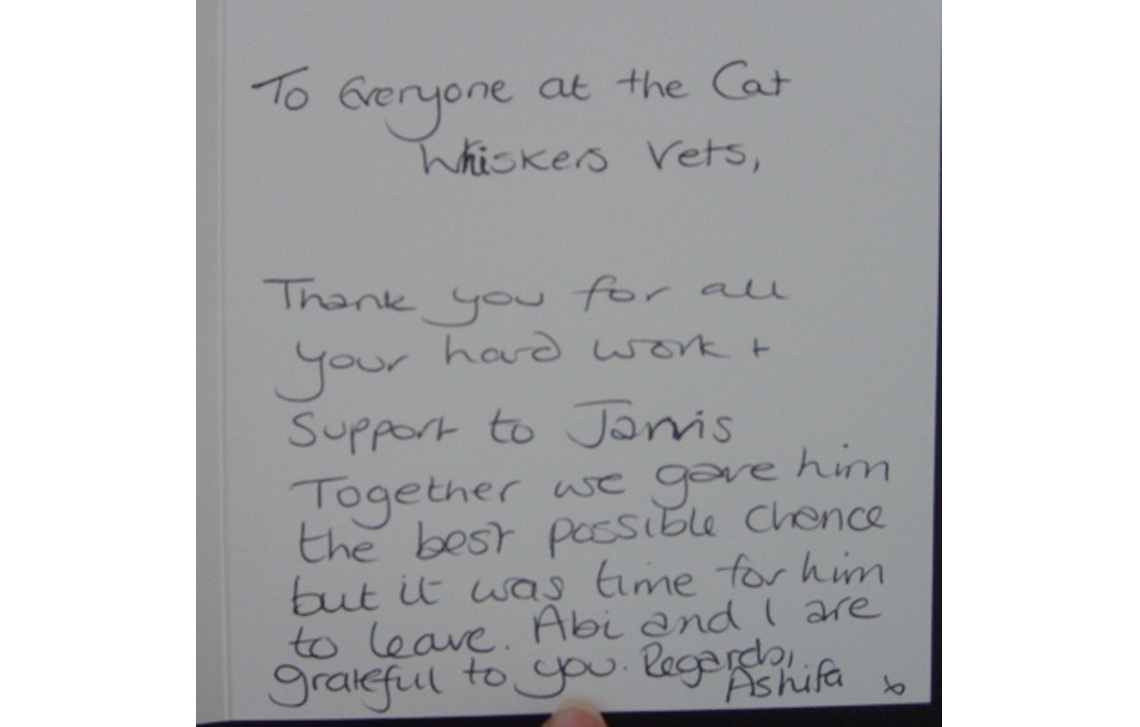 To Everyone at the Cat
Whiskers Vets,
Thank you for all
your hard work +
Support to Jarvis
Together we gave him
the best possible chance
but it was time for him
to leave. Abi and I are
grateful to you. Regards,
Ashifa x